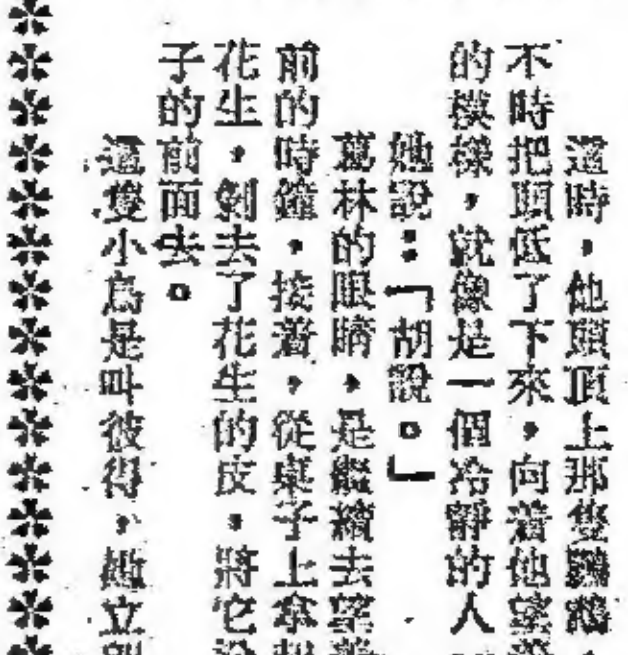 這時，他頭頂上那隻鸚鵡，
不時把頭低了下來，向着他望着
的模樣，就像是一個冷靜的人
她說：「胡說。」
葛林的眼睛，是繼續去望着
前的時鐘，接着，從桌子上拿起
花生，剝去了花生的皮，將它
子的前面去。
這隻小鳥是叫彼得，牠立